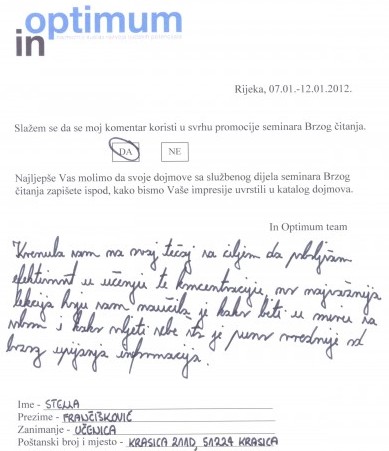 in optimum
Rijeka, 07.01.-12.01.2012.
Slažem se da se moj komentar koristi u svrhu promocije seminara Brzog čitanja.
DA NE
Najljepše Vas molimo da svoje dojmove sa službenog dijela seminara Brzog
čitanja zapišete ispod, kako bismo Vaše impresije uvrstili u katalog dojmova.
In Optimum team
Krenula sam na ovaj tečaj sa ciljem da poboljšam
efektivnost u učenju te koncentraciju, no najvažnija
lekcija koju sam naučila je kako biti u miru sa
sobom i kako voljeti sebe što je puno vrednije od
brzog upijanja informacija.
Ime - STELLA
Prezime - FRANČIŠKOVIĆ
Zanimanje - UČENICA
Poštanski broj i mjesto - KRASICA 211D, 51224 KRASICA